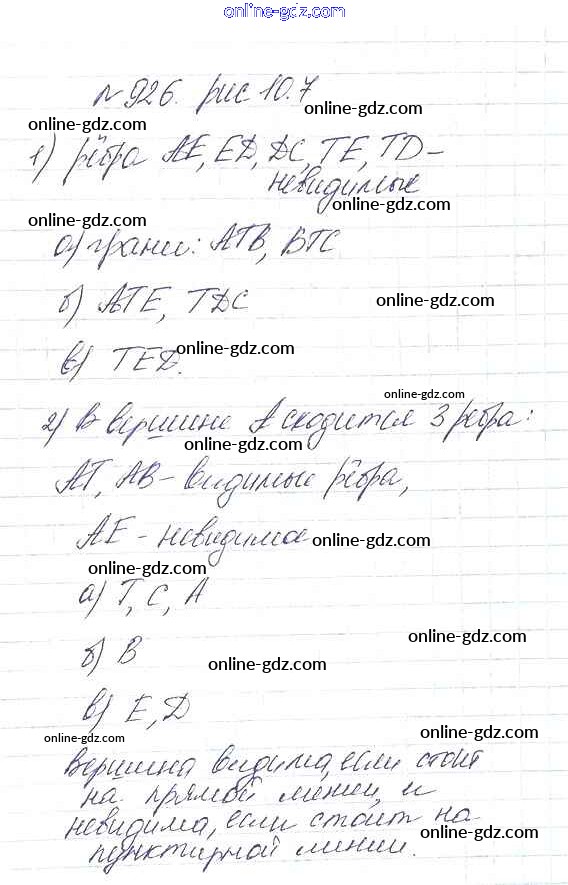 online-gdz.com
№926. рис 10.7
online-gdz.com
online-gdz.com
1) рёбра AE, ED, DC, TE, TD –
невидимые
online-gdz.com
online-gdz.com
а) грани: ATB, BTC
б) ATE, TDC
online-gdz.com
в) TED.
online-gdz.com
online-gdz.com
2) В вершине A сходится 3 ребра:
online-gdz.com
AT, AB – видимые рёбра,
online-gdz.com
AE – невидимое
online-gdz.com
online-gdz.com
а) T, C, A
online-gdz.com
б) B
online-gdz.com
в) E, D
online-gdz.com
online-gdz.com
Вершина видима, если стоит
на прямой линии, и
online-gdz.com
невидима, если стоит на
online-gdz.com
пунктирной линии.